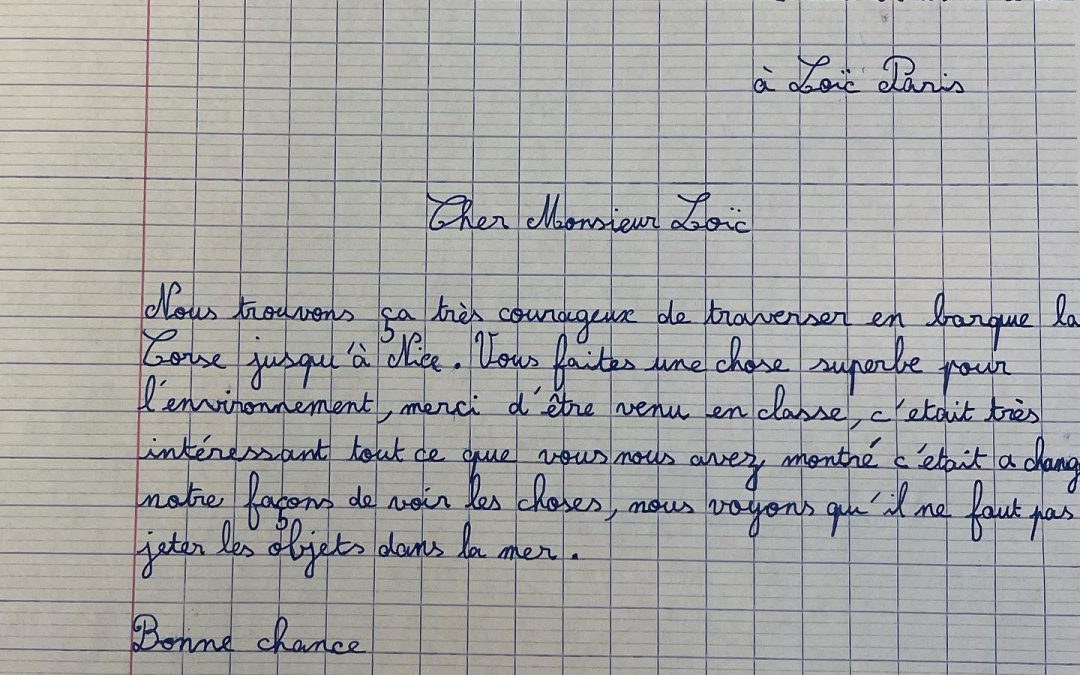 à Loïc Paris
Cher Monsieur Loïc
Nous trouvons ça très courageux de traverser en barque la
Corse jusqu'à Nice. Vous faites une chose superbe pour
l'environnement, merci d'être venu en classe, c'etait très
intéressant tout ce que vous nous avez montré c'était a chang
notre façons de voir les choses, nous voyons qu'il ne faut pas
jeter les objets dans la mer.
Bonne chance